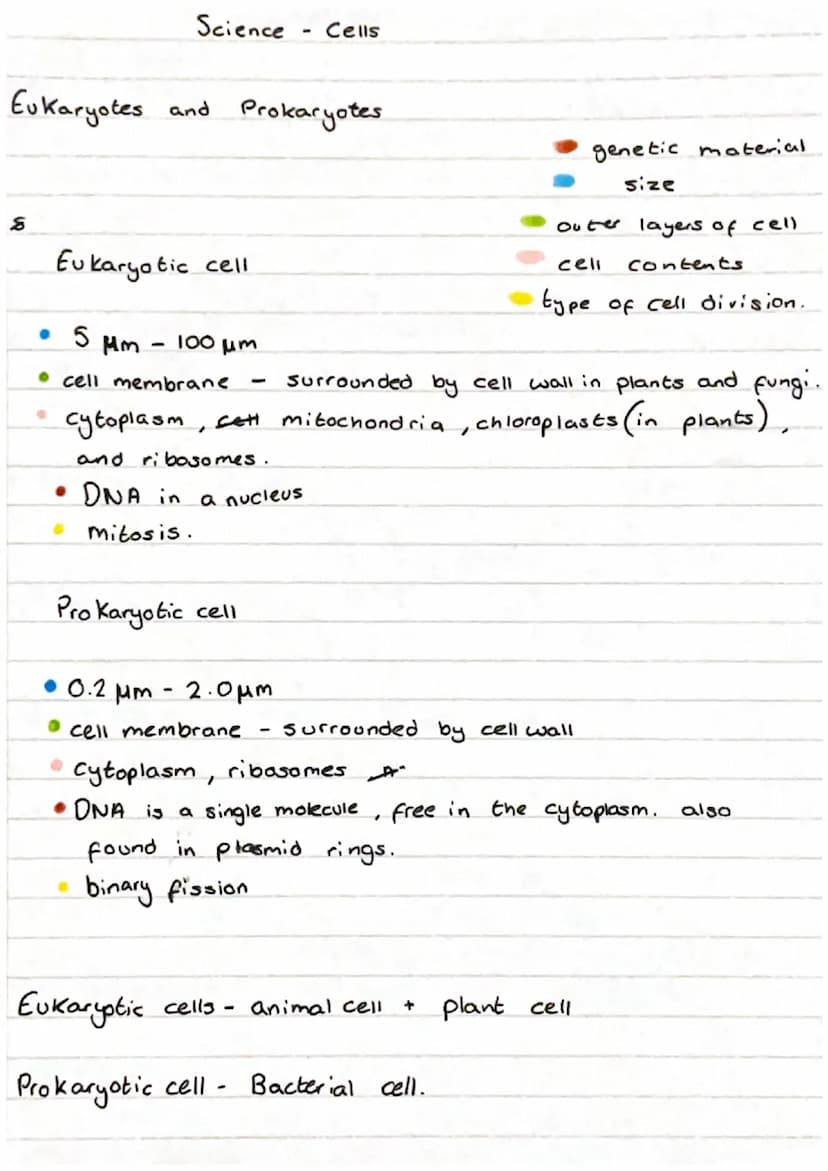 Science - Cells
Eukaryotes and Prokaryotes
genetic material
size
outer layers of cell
cell contents
type of cell division.
Eukaryotic cell
5 µm - 100 µm
cell membrane - surrounded by cell wall in plants and fungi.
cytoplasm, cell mitochondria, chloroplasts (in plants),
and ribosomes.
DNA in a nucleus
mitosis.
Prokaryotic cell
0.2 µm - 2.0 µm
cell membrane - surrounded by cell wall
cytoplasm, ribosomes
DNA is a single molecule, free in the cytoplasm. also
found in plasmid rings.
binary fission
Eukaryotic cells - animal cell + plant cell
Prokaryotic cell - Bacterial cell.